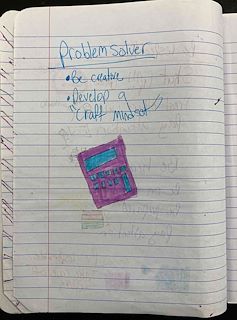 Problem solver
• Be creative
• Develop a
"craft mindset"